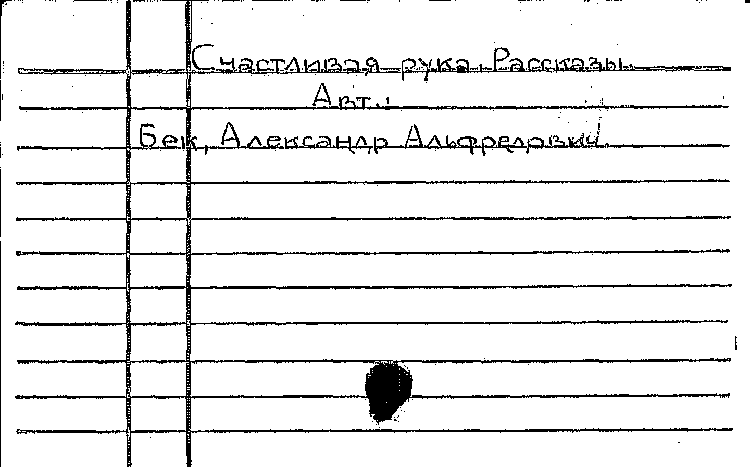 Счастливая рука. Рассказы.
Авт.:
Бек, Александр Альфредович.